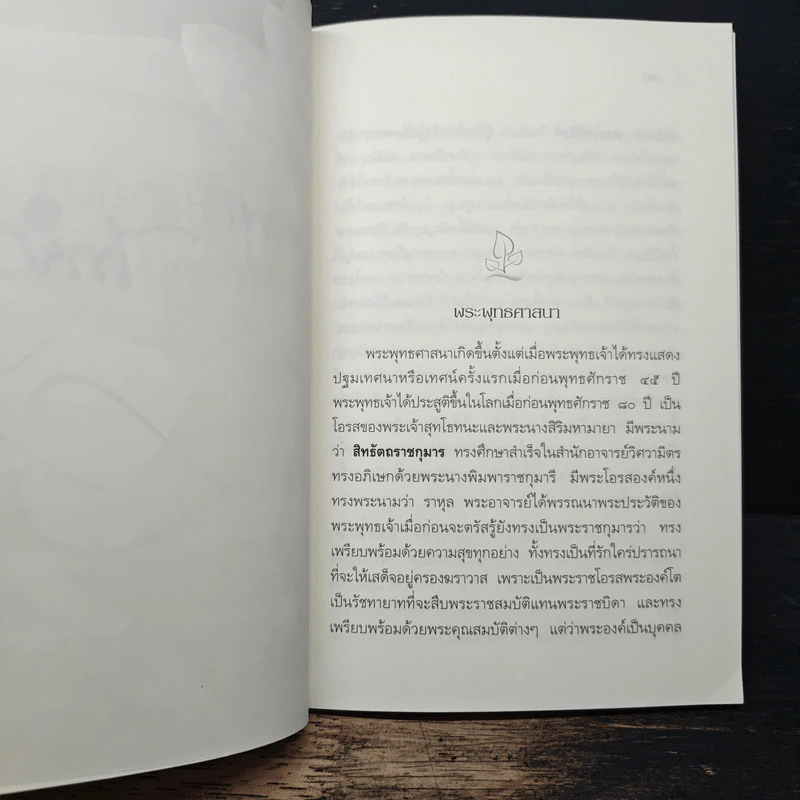 พระพุทธศาสนา
พระพุทธศาสนาเกิดขึ้นตั้งแต่เมื่อพระพุทธเจ้าได้ทรงแสดง
ปฐมเทศนาหรือเทศน์ครั้งแรกเมื่อก่อนพุทธศักราช ๔๕ ปี
พระพุทธเจ้าได้ประสูติขึ้นในโลกเมื่อก่อนพุทธศักราช ๘๐ ปี เป็น
โอรสของพระเจ้าสุทโธทนะและพระนางสิริมหามายา มีพระนาม
ว่า สิทธัตถราชกุมาร ทรงศึกษาสำเร็จในสำนักอาจารย์วิศวามิตร
ทรงอภิเษกด้วยพระนางพิมพาราชกุมารี มีพระโอรสองค์หนึ่ง
ทรงพระนามว่า ราหุล พระอาจารย์ได้พรรณนาพระประวัติของ
พระพุทธเจ้าเมื่อก่อนจะตรัสรู้ยังทรงเป็นพระราชกุมารว่า ทรง
เพรียบพร้อมด้วยความสุขทุกอย่าง ทั้งทรงเป็นที่รักใคร่ปรารถนา
ที่จะให้เสด็จอยู่ครองฆราวาส เพราะเป็นพระราชโอรสพระองค์โต
เป็นรัชทายาทที่จะสืบพระราชสมบัติแทนพระราชบิดา และทรง
เพรียบพร้อมด้วยพระคุณสมบัติต่างๆ แต่ว่าพระองค์เป็นบุคคล